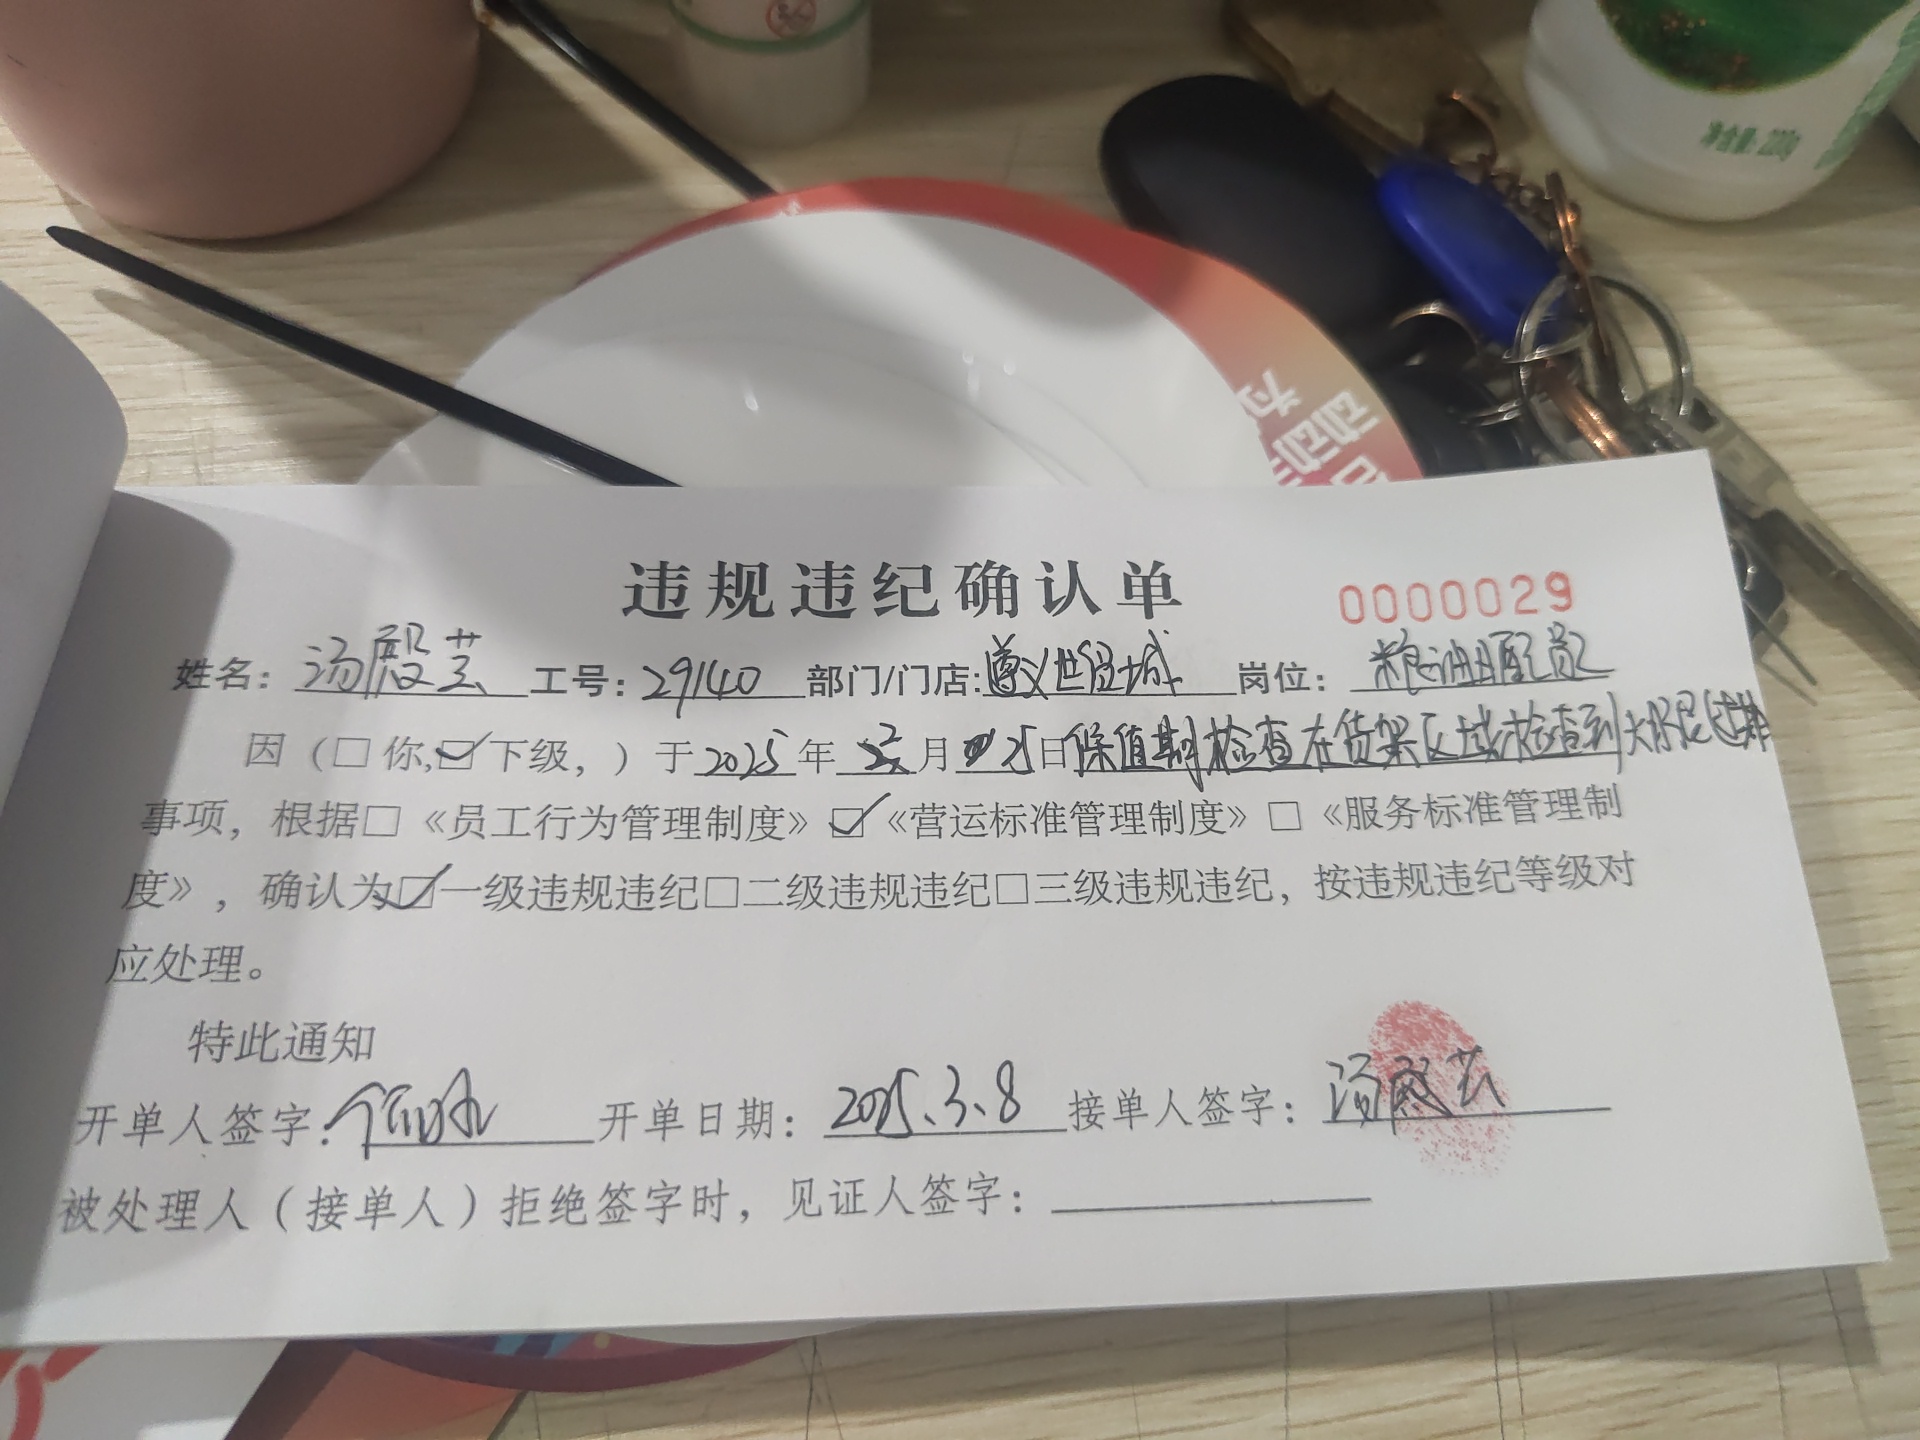 动动
为
违规违纪确认单
0000029
姓名：汤殿芸 工号：29140 部门/门店：遵义世纪城 岗位：粮油日配员
因（□你，☑下级，）于2025年 月 25日保值期检查在货架区域检查到
事项，根据□《员工行为管理制度》☑《营运标准管理制度》□《服务标准管理制
度》，确认为☑一级违规违纪□二级违规违纪□三级违规违纪，按违规违纪等级对
应处理。
特此通知
开单人签字： 开单日期：2025.3.8 接单人签字：汤殿芸
被处理人（接单人）拒绝签字时，见证人签字：